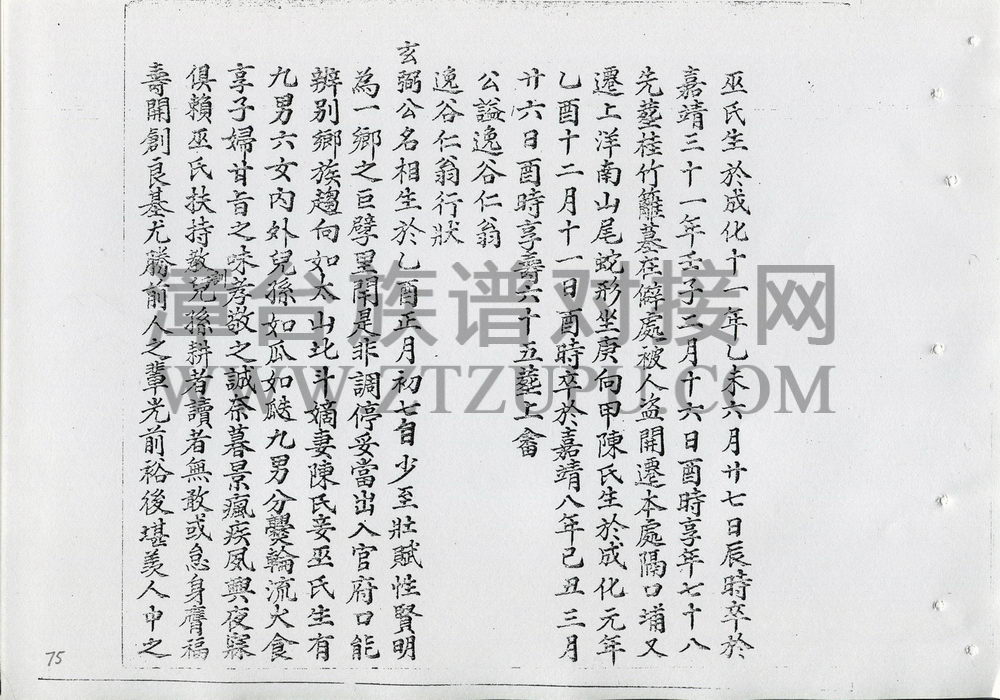 巫氏生於成化十一年乙未六月廿七日辰時卒於
嘉靖三十一年壬子二月十六日酉時享年七十八
先塟桂竹籬墓在僻處被人盗開遷本處隔口埔又
遷上洋南山尾蛇形坐庚向甲陳氏生於成化元年
乙酉十二月十一日酉時卒於嘉靖八年己丑三月
廿六日酉時享壽六十五塟上畬
公謚逸谷仁翁
逸谷仁翁行狀
玄弼公名相生於乙酉正月初七自少至壯賦性賢明
為一鄉之巨擘里閈是非調停妥當出入官府口能
辨别鄉族趨向如太山北斗嫡妻陳氏妾巫氏生有
九男六女内外兒孫如瓜如瓞九男分爨輪流大食
享子婦甘旨之味孝敬之誠奈暮景瘋疾夙興夜寐
俱賴巫氏扶持教兒孫耕者讀者無敢或怠身膺福
壽開創良基尤勝前人之輩光前裕後堪羡人中之
漳台族谱对接网
WWW.ZTZUPU.COM
75